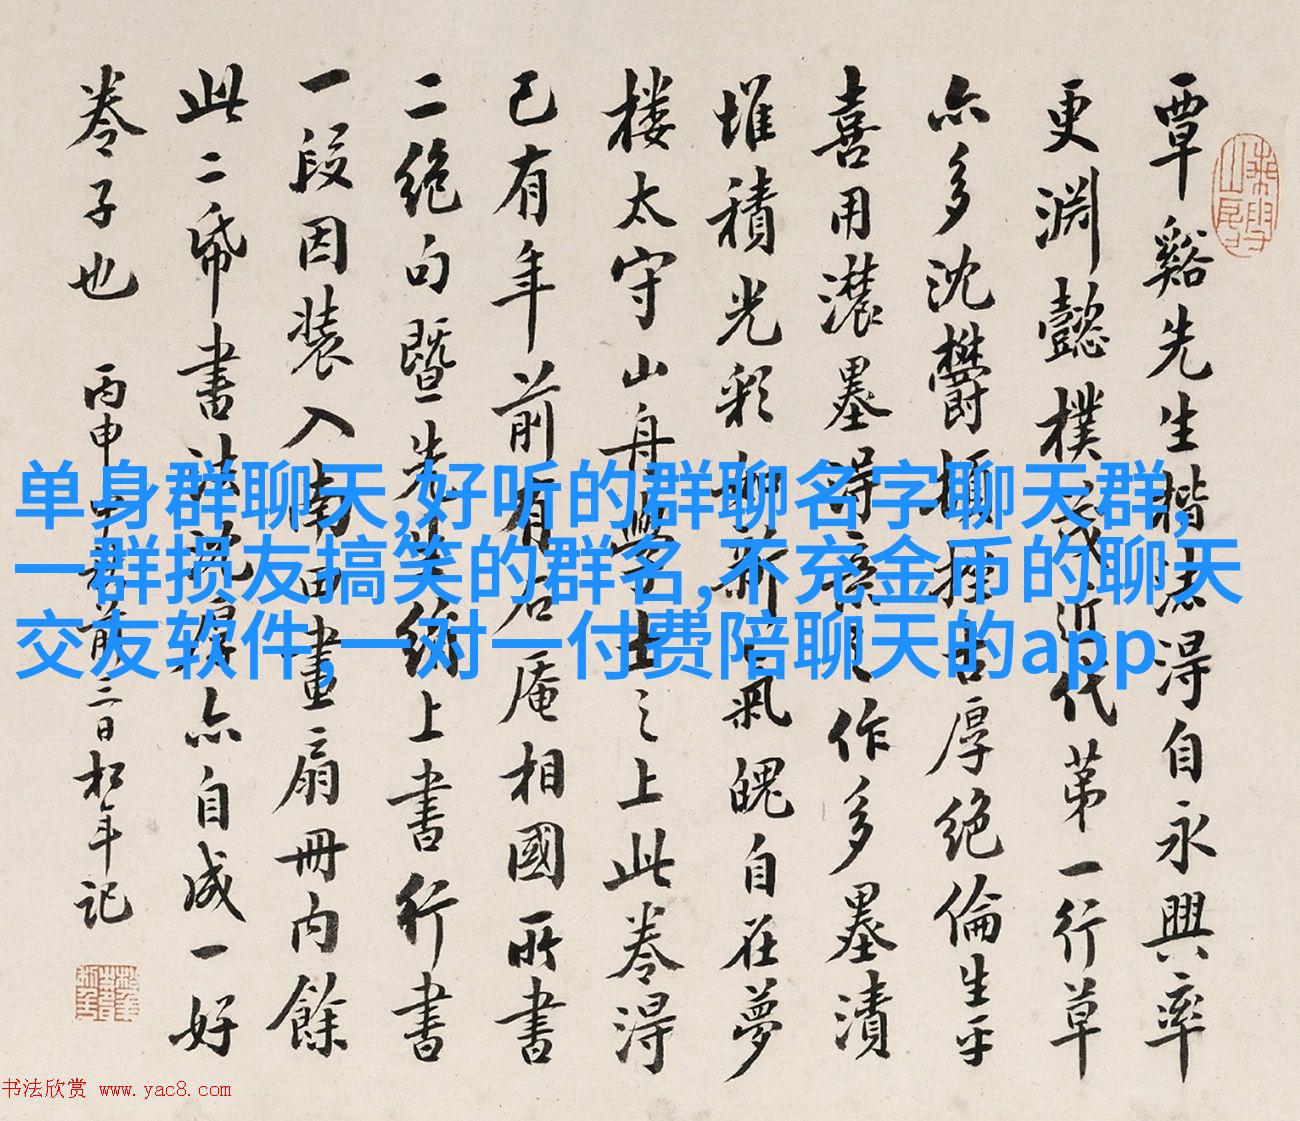 覃谿先生楷法得自永興率
更渊懿樸茂近代第一行草
亦多沈欝頓挫古厚絶倫生平
喜用濃墨得意之作多墨漬
堆積光彩如新气魄自在夢
楼太守山舟學士之上此卷得
已有年前有石庵相國所書
二絶句暨先生餘上書行書
一段因装入南田畫扇冊内餘
此二帋書法亦自成一好
卷子也
丙申 前三日松年記
单身群聊天,好听的群聊名字聊天群,
一群损友搞笑的群名,不充金币的聊天
交友软件,一对一付费陪聊天的app
书法欣赏 www.yac8.com